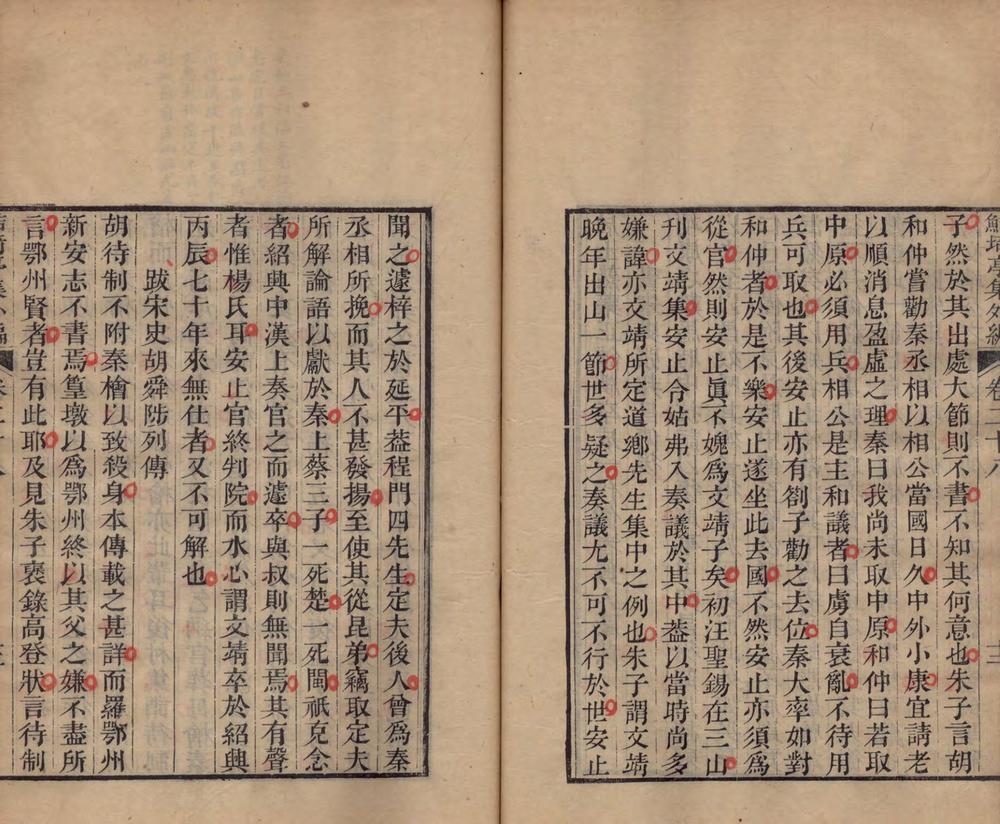 鮚埼亭集外編 卷二十八 十三
子然於其出處大節則不書不知其何意也朱子言胡
和仲嘗勸秦丞相以相公當國日久中外小康宜請老
以順消息盈虛之理秦曰我尚未取中原和仲曰若取
中原必須用兵相公是主和議者曰虜自衰亂不待用
兵可取也其後安止亦有劄子勸之去位秦大率如對
和仲者於是不樂安止遂坐此去國不然安止亦須爲
從官然則安止眞不媿爲文靖子矣初汪聖錫在三山
刊文靖集安止令姑弗入奏議於其中葢以當時尚多
嫌諱亦文靖所定道鄉先生集中之例也朱子謂文靖
晚年出山一節世多疑之奏議尤不可不行於世安止
聞之遽梓之於延平葢程門四先生定夫後人曾爲秦
丞相所挽而其人不甚發揚至使其從昆弟竊取定夫
所解論語以獻於秦上蔡三子一死楚一死閩祇克念
者紹興中漢上奏官之而遽卒與叔則無聞焉其有聲
者惟楊氏耳安止官終判院而水心謂文靖卒於紹興
丙辰七十年來無仕者又不可解也
跋宋史胡舜陟列傳
胡待制不附秦檜以致殺身本傳載之甚詳而羅鄂州
新安志不書焉篁墩以爲鄂州終以其父之嫌不盡所
言鄂州賢者豈有此耶及見朱子褒錄高登狀言待制